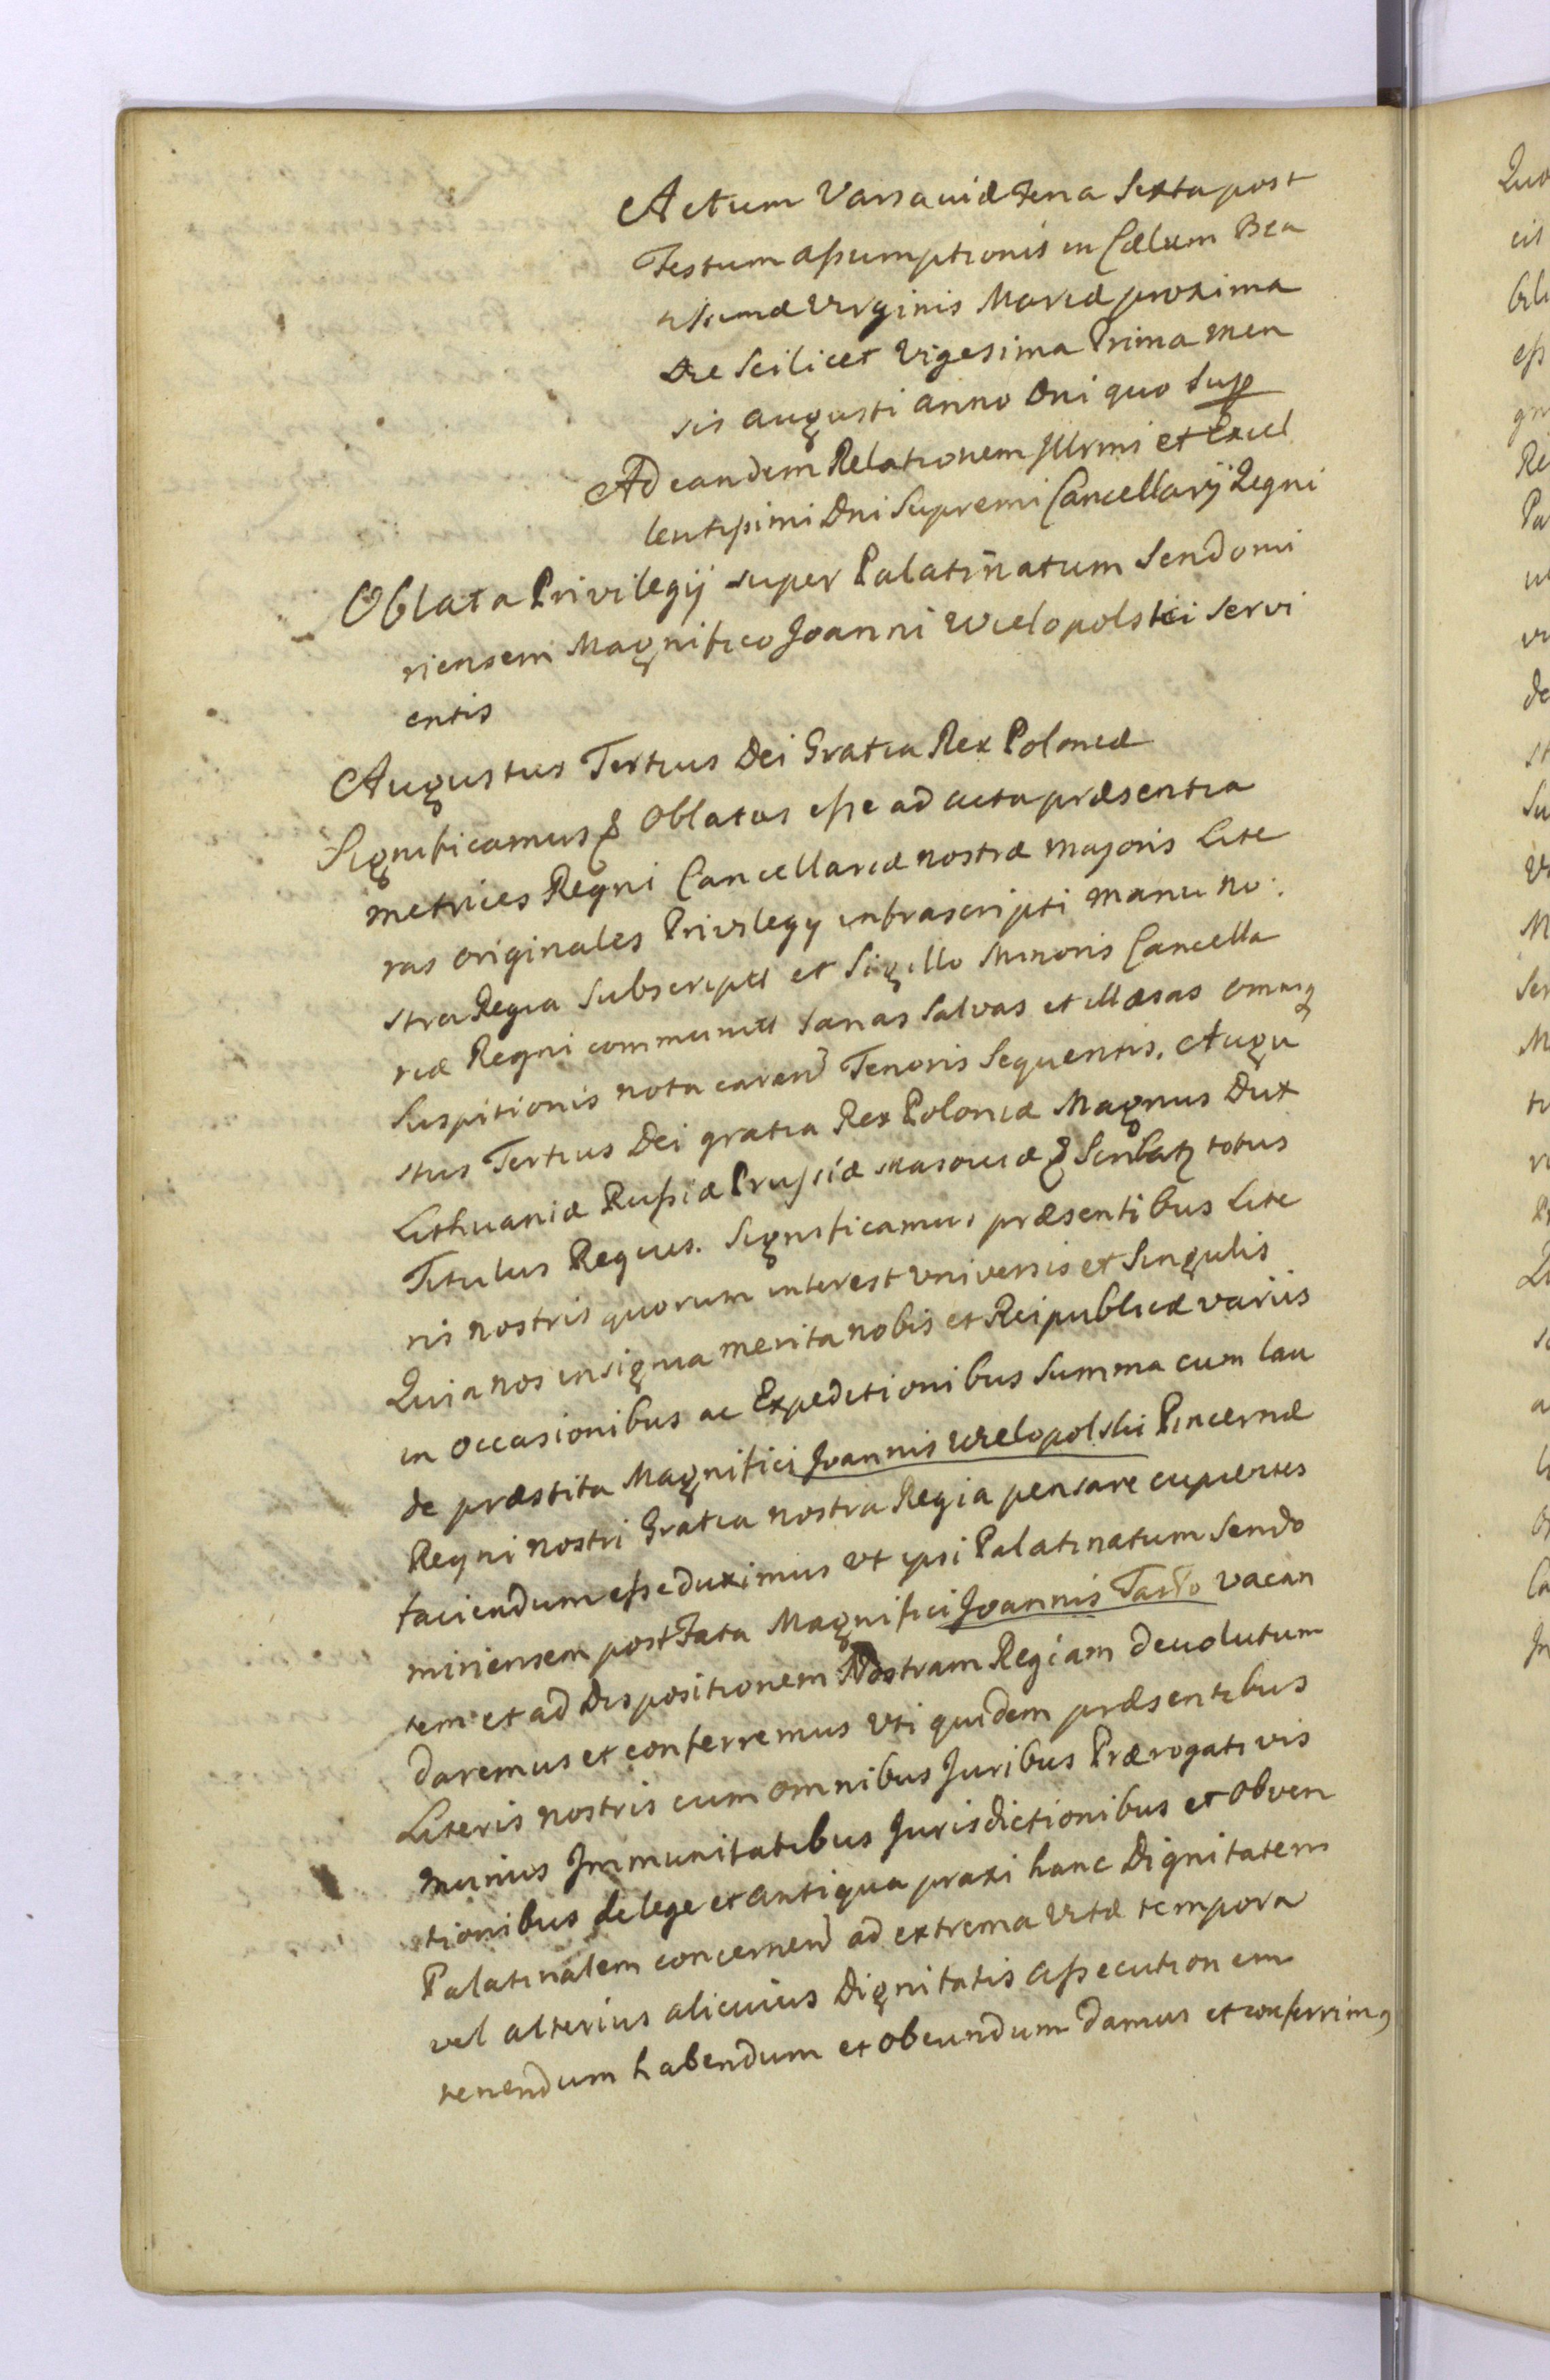 Actum Varsaviæ Feria Sexta post
Festum Assumptionis in Cælum Bea
tissimæ Virginis Mariæ proxima
Die Scilicet Vigesima Prima Men
sis Augusti Anno Dni quo Sup
Ad eandem Relationem Illrmi et Excel
lentissimi Dni Supremi Cancellarij Regni
Oblata Privilegij super Palatinatum Sendomi
riensem Magnifico Joanni Wielopolskei Servi
entis
Augustus Tertius Dei Gratia Rex Poloniæ
Significamus & Oblatas esse ad acta præsentia
metrices Regni Cancellariæ nostræ majoris Lite
ras originales Privilegy infrascripti manu no:
stra Regia Subscriptt et Sigillo Minoris Cancella
riæ Regni communitt sanas salvas et illæsas omniq
Suspitionis nota carend Tenoris Sequentis. Augu
stus Tertius Dei gratia Rex Poloniæ Magnus Dux
Lithuaniæ Russiæ Prussiæ Masoviæ &
Titulus Regius. Significamus præsentibus Lite
ris nostris quorum interest Universis et Singulis
Quia nos insignia merita nobis et Reipublicæ variis
in occasionibus ac Expeditionibus Summa cum lau
de præstita Magnifici Joannis Wielopolski Pincernæ
Regni nostri Gratia nostra Regia pensare cupientes
faciendum esse duximus Vt ipsi Palatinatum Sendo
miriensem post Fata Magnifici Joannis Tarło vacan
tem et ad Dispositionem Nostram Regiam devolutum
daremus et conferremus Vti quidem præsentibus
Literis nostris cum omnibus Juribus Prærogativis
muniis Immunitatibus Jurisdictionibus et obven
tionibus de lege et antiqua praxi hanc Dignitatem
Palatinalem concernend ad extrema Vitæ tempora
vel alterius alicuius Dignitatis Assecutionem
tenendum habendum et obeundum damus et conferrimq